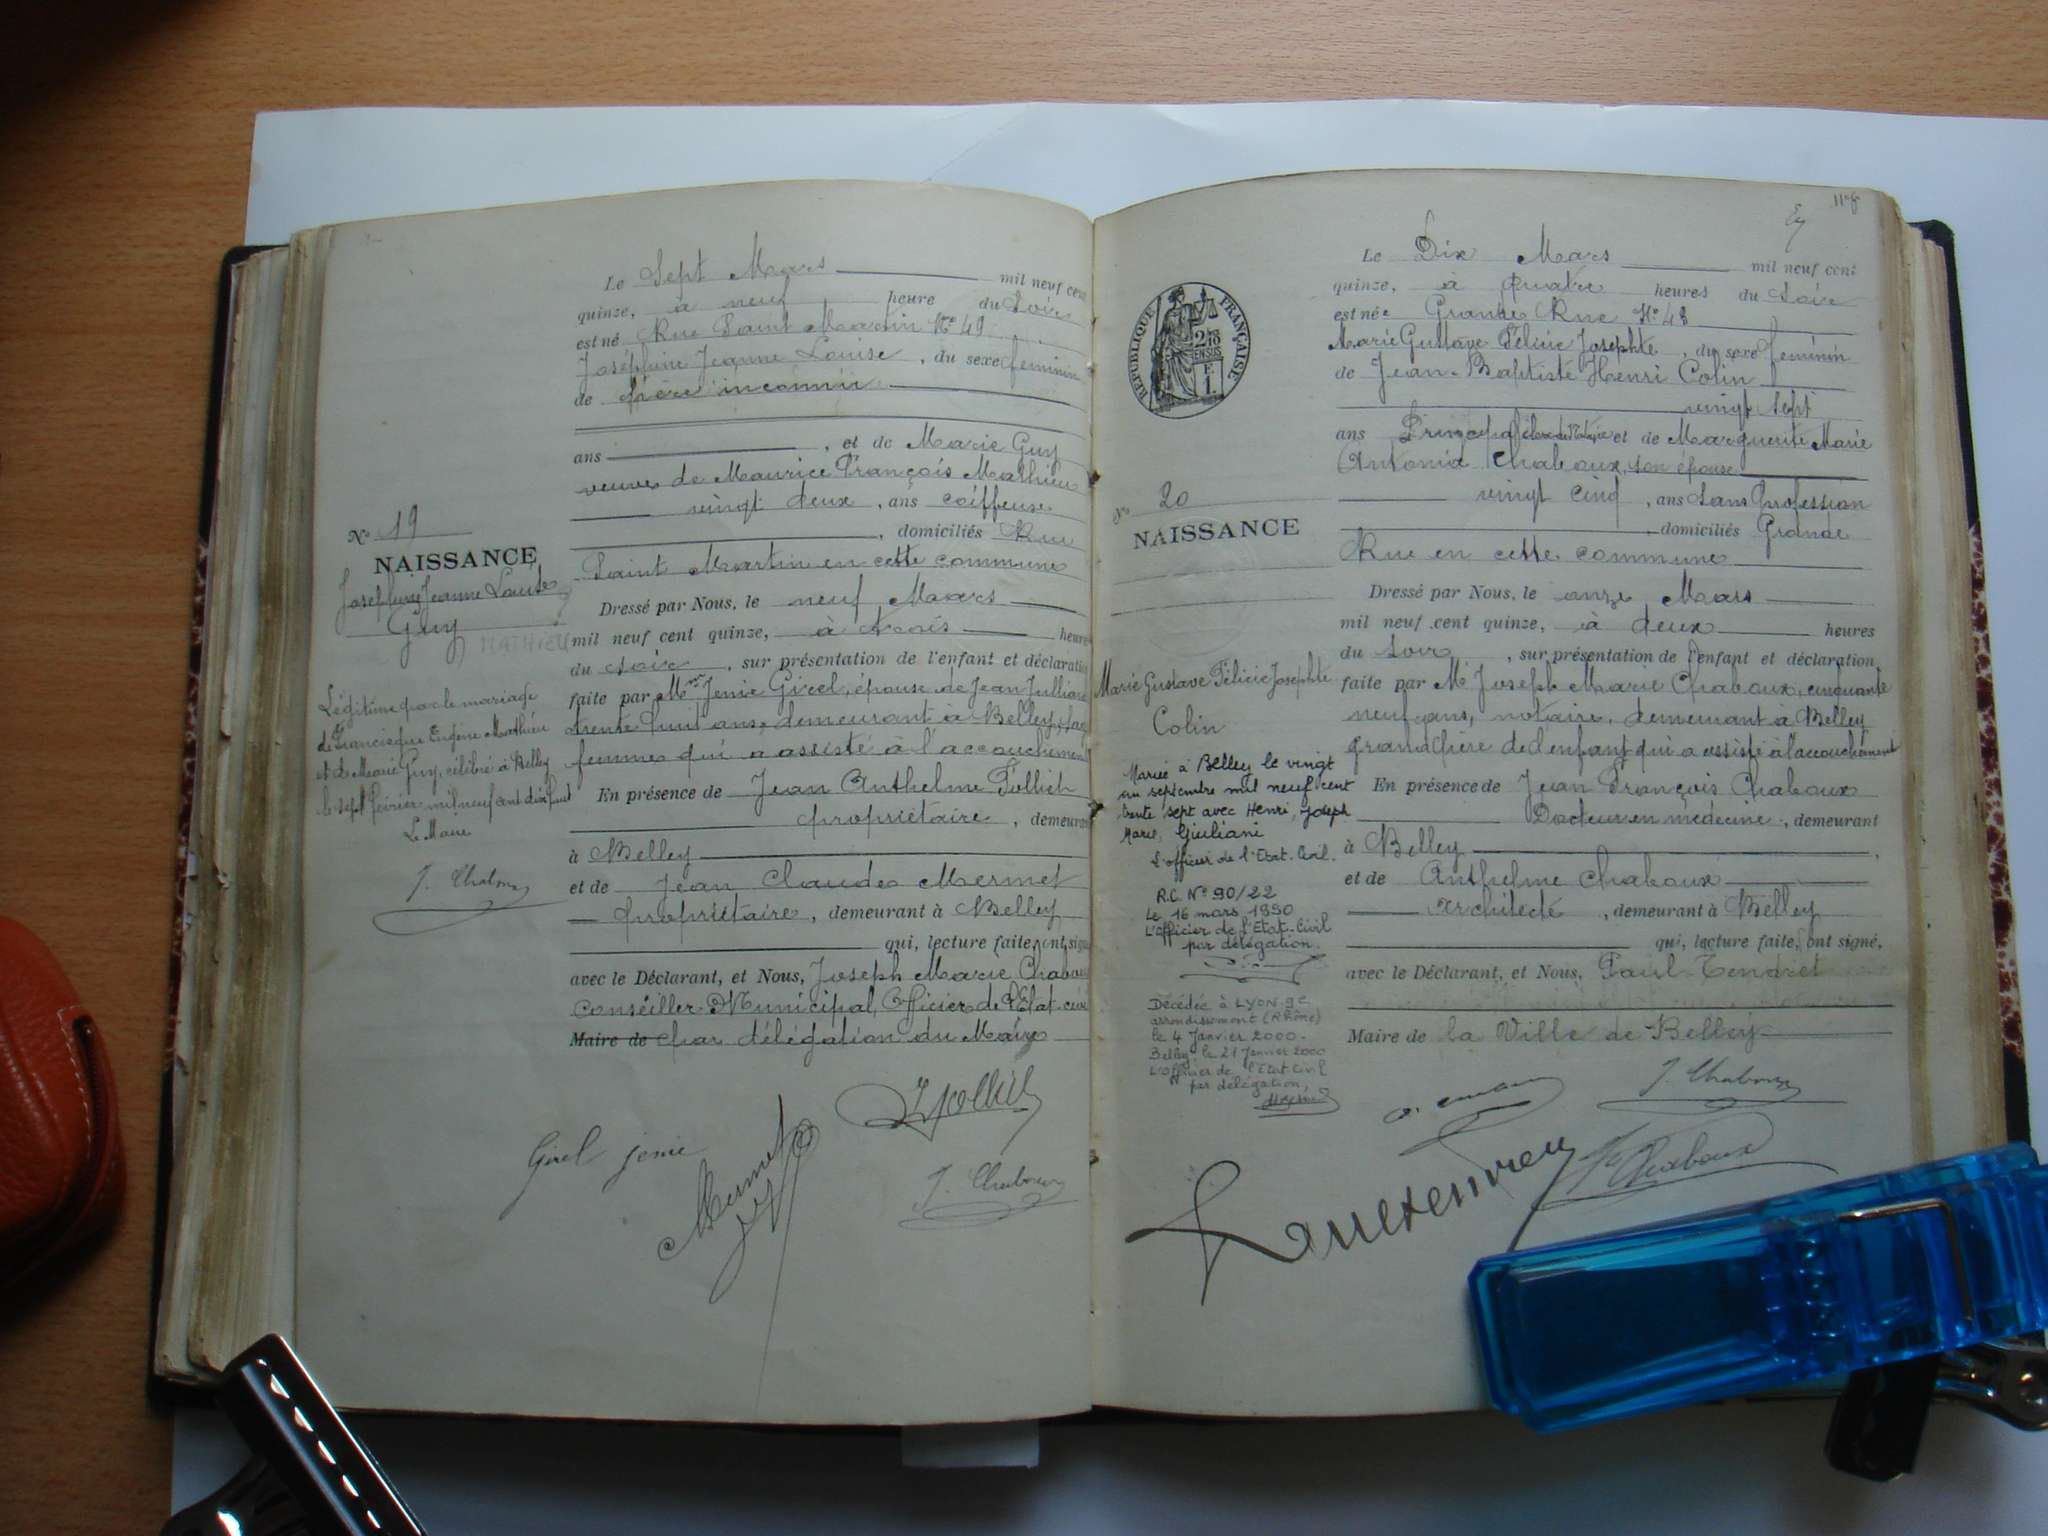 Le Sept Mars mil neuf cent
quinze, à neuf heure du Soir
est né Rue Saint Martin No 49
Joséphine Jeanne Louise, du sexe feminin
de père inconnu
ans , et de Marie Guy
veuve de Maurice François Mathieu
vingt deux, ans coiffeuse
, domiciliés Rue
Saint Martin en cette commune
Dressé par Nous, le neuf Mars
mil neuf cent quinze, à trois heures
du soir, sur présentation de l'enfant et déclaration
faite par Mme Jenie Girel, épouse de Jean Julliand
trente huit ans, demeurant à Belley, sage
femme qui a assisté à l'accouchement
En présence de Jean Anthelme Follich
propriétaire, demeurant
à Belley
et de Jean Claude Mermet
propriétaire, demeurant à Belley
qui, lecture faite, ont signé
avec le Déclarant, et Nous, Joseph Marie Chaboux
Conseiller Municipal, Officier de l'Etat-civil
Maire de par délégation du Maire
No 19
NAISSANCE
Joséphine Jeanne Louise
Guy
MATHIEU
Légitimé par le mariage
de Francisque Eugène Mathieu
et de Marie Guy, célébré à Belley
le sept février mil neuf cent dix huit
Le Maire
J. Chaboux
Girel jenie
Mermet
J. Chaboux
RÉPUBLIQUE FRANÇAISE
Le Dix Mars mil neuf cent
quinze, à quatre heures du Soir
est née Grande Rue No 48
Marie Gustave Félicie Josephte, du sexe feminin
de Jean-Baptiste Henri Colin
vingt sept
ans Principal clerc de Notaire et de Marguerite Marie
Antonia Chaboux, son épouse
vingt cinq, ans Sans Profession
domiciliés Grande
Rue en cette commune
Dressé par Nous, le onze Mars
mil neuf cent quinze, à deux heures
du Soir, sur présentation de l'enfant et déclaration
faite par Mr Joseph Marie Chaboux, cinquante
neuf ans, notaire, demeurant à Belley
grand père de l'enfant qui a assisté à l'accouchement
En présence de Jean François Chaboux
Docteur en médecine, demeurant
à Belley
et de Anthelme Chaboux
architecte, demeurant à Belley
qui, lecture faite, ont signé,
avec le Déclarant, et Nous, Paul Tendret
Maire de la Ville de Belley
No 20
NAISSANCE
Marie Gustave Félicie Josephte
Colin
Mariée à Belley le vingt
un septembre mil neuf cent
trente sept avec Henri, Joseph
Marie, Giuliani
L'officier de l'Etat-Civil.
R.C. No 90/22
Le 16 mars 1990
L'Officier de l'Etat-Civil
par délégation.
Décédée à LYON 9e
arrondissement (Rhône)
le 4 Janvier 2000.
Belley, le 21 Janvier 2000
L'Officier de l'Etat Civil
par délégation,
J. Chaboux
Chaboux